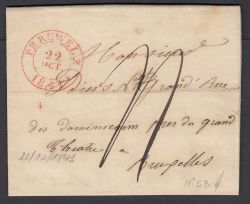 PERUWELZ
22
OCT
Monsieur
Grand' Rue
des dominicains près du grand
Théâtre a
Bruxelles
22/10/1841
N° 5B